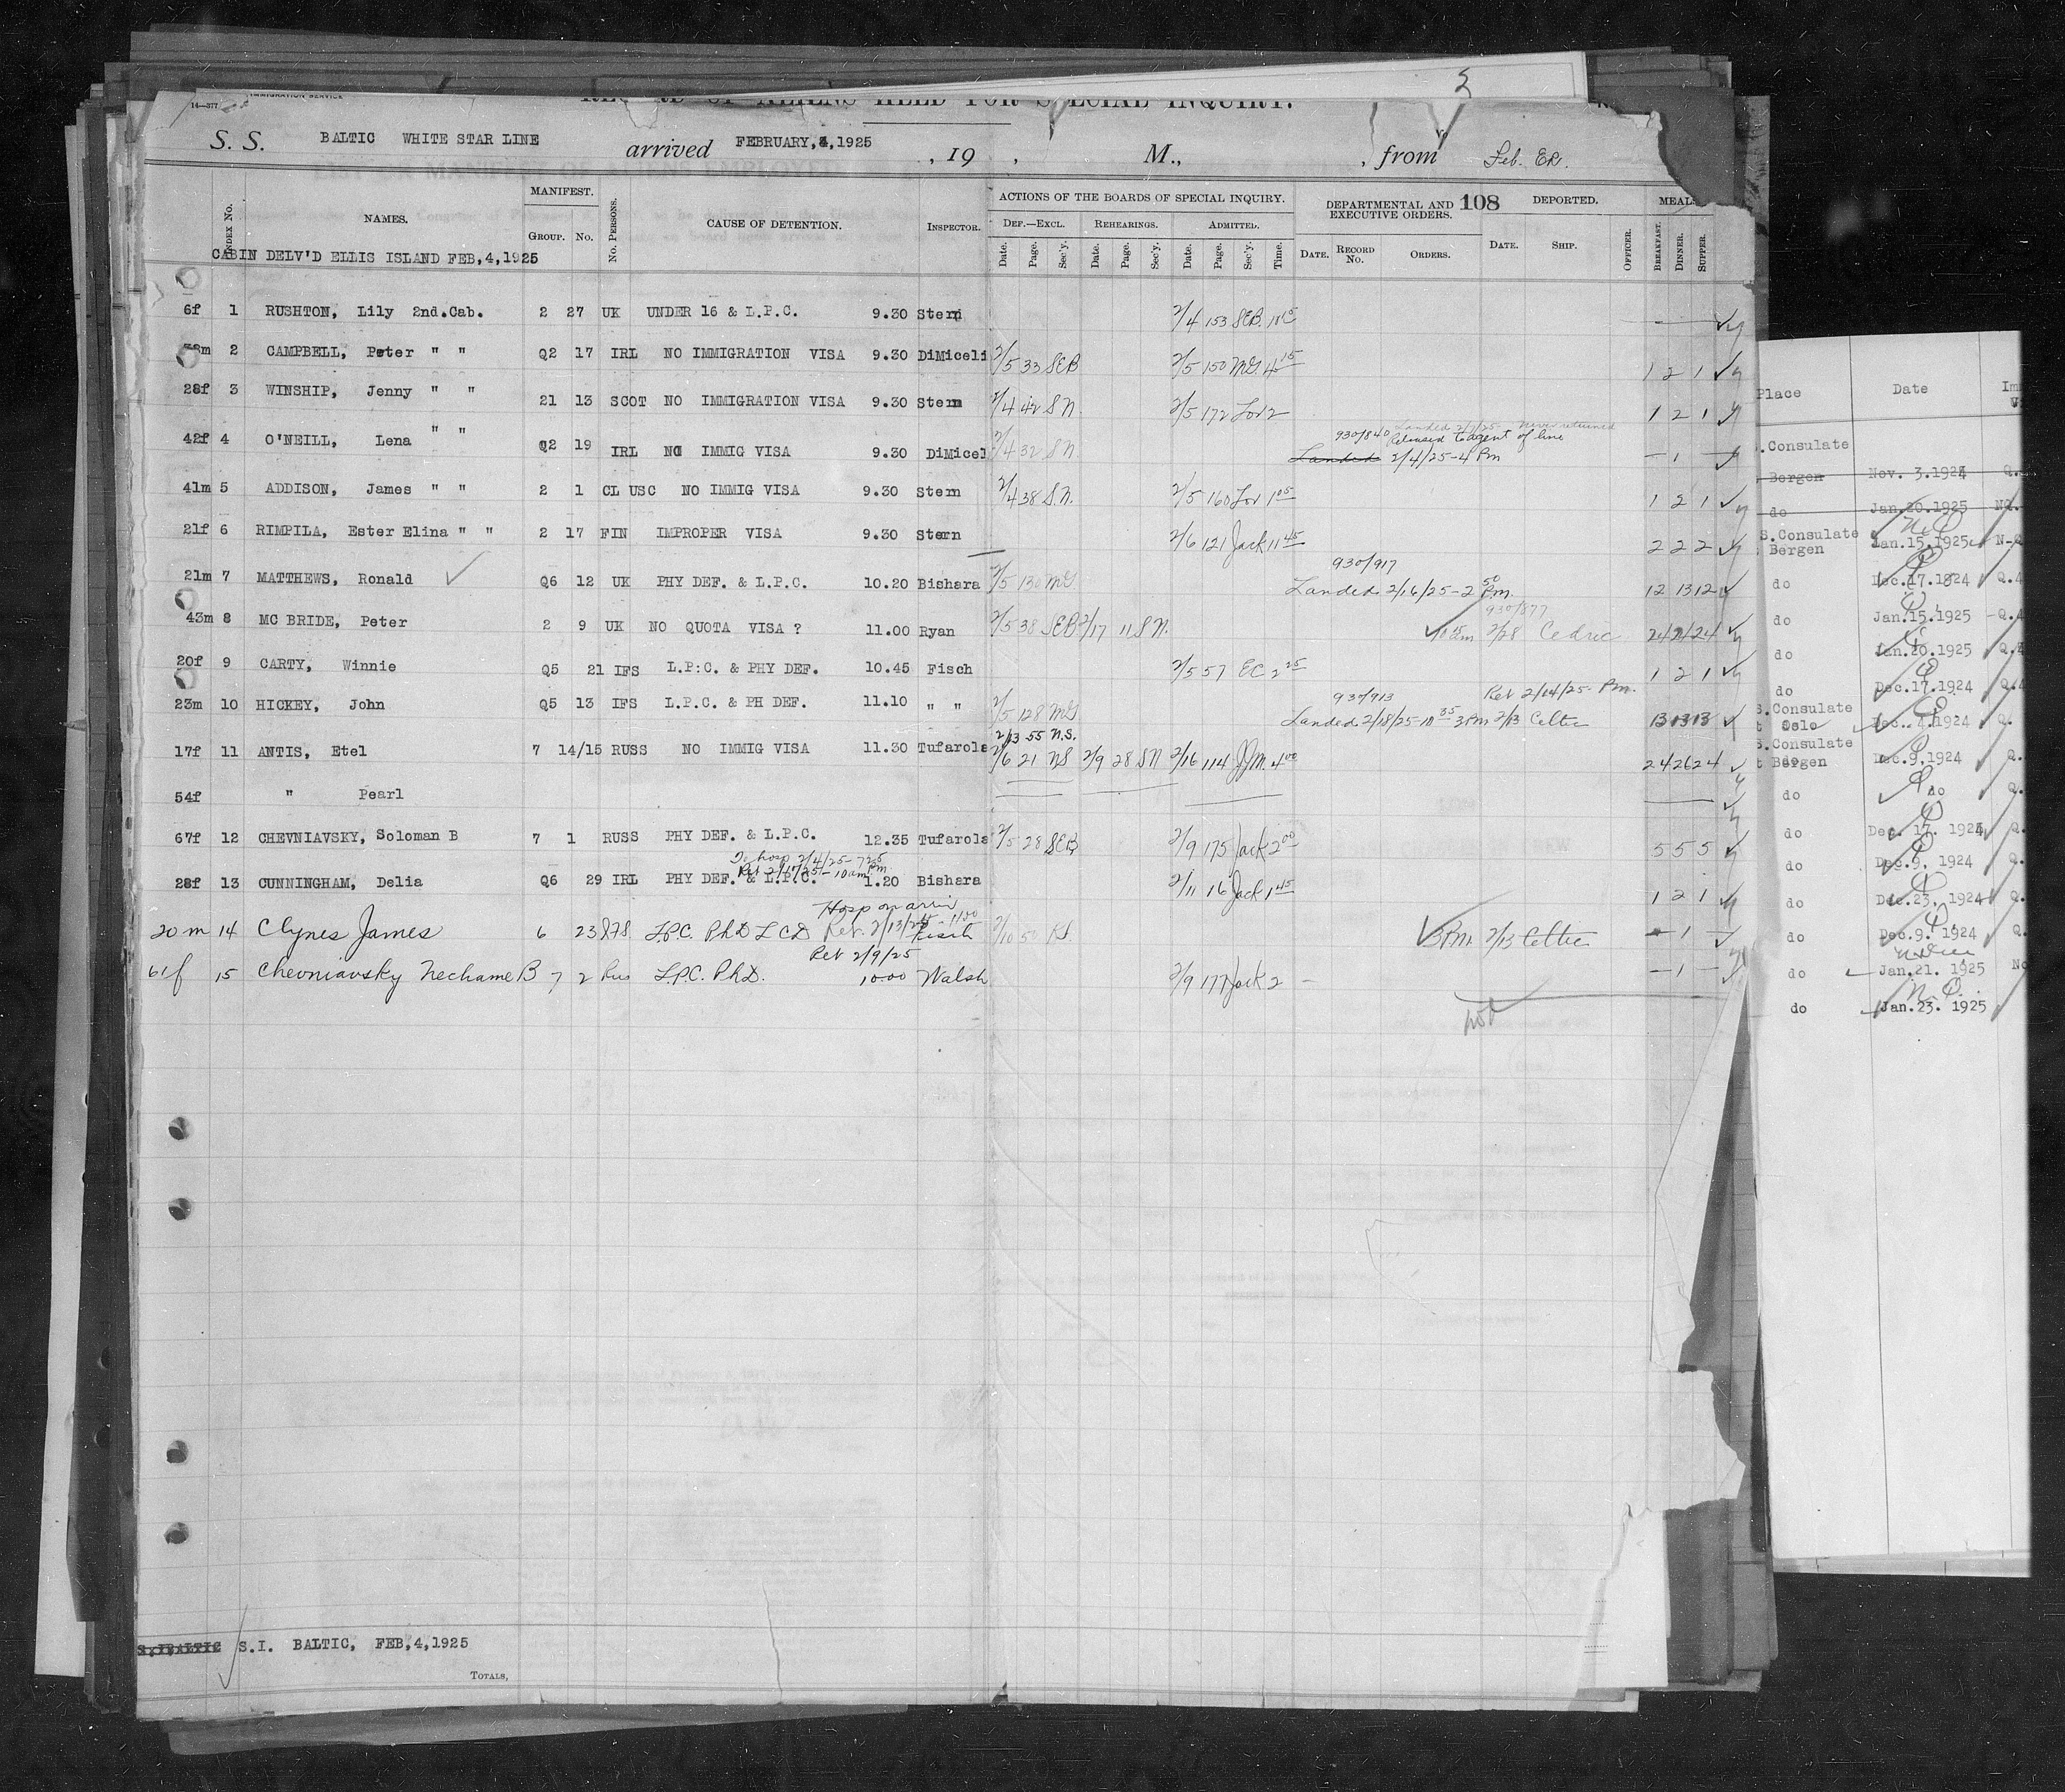 14—377
IMMIGRATION SERVICE
RECORD OF ALIENS HELD FOR SPECIAL INQUIRY.
S. S. BALTIC WHITE STAR LINE arrived FEBRUARY,4,1925 , 19 , M., , from Feb. ER.
108
INDEX No. NAMES. MANIFEST. GROUP. No. No. PERSONS. CAUSE OF DETENTION. INSPECTOR. ACTIONS OF THE BOARDS OF SPECIAL INQUIRY. DEF.—EXCL. REHEARINGS. ADMITTED. DEPARTMENTAL AND EXECUTIVE ORDERS. DEPORTED. MEALS
Date. Page. Sec'y. Date. Page. Sec'y. Date. Page. Sec'y. Time. DATE. RECORD No. ORDERS. DATE. SHIP. OFFICER. BREAKFAST. DINNER. SUPPER.
CABIN DELV'D ELLIS ISLAND FEB,4,1925
6f 1 RUSHTON, Lily 2nd.Cab. 2 27 UK UNDER 16 & L.P.C. 9.30 Stern 2/4 153 SEB.
2 CAMPBELL, Peter " " Q2 17 IRL NO IMMIGRATION VISA 9.30 DiMiceli 2/5 33 SEB 2/5 150 MG 4 15 1 2 1
28f 3 WINSHIP, Jenny " " 21 13 SCOT NO IMMIGRATION VISA 9.30 Stern 2/4 42 S N. 2/5 172 Lov 2 1 2 1
42f 4 O'NEILL, Lena " " Q2 19 IRL NO IMMIG VISA 9.30 DiMicel 2/4 32 S N. 930/840 Landed 2/7/25 - Never returned
Released to agent of line
Landed 2/4/25-4 Pm — 1 —
41m 5 ADDISON, James " " 2 1 CL USC NO IMMIG VISA 9.30 Stern 2/4 38 S.N. 2/5 160 Lov 1 05 1 2 1
21f 6 RIMPILA, Ester Elina " " 2 17 FIN IMPROPER VISA 9.30 Stern 2/6 121 Jack 11 45 2 2 2
21m 7 MATTHEWS, Ronald Q6 12 UK PHY DEF. & L.P.C. 10.20 Bishara 2/5 130 MG 930/917 Landed 2/16/25-2 50 Pm. 12 13 12
43m 8 MC BRIDE, Peter 2 9 UK NO QUOTA VISA ? 11.00 Ryan 2/5 38 SEB 2/17 11 S N. 930/877 2/28 Cedric
20f 9 CARTY, Winnie Q5 21 IFS L.P:C. & PHY DEF. 10.45 Fisch 2/5 57 EC 2 25 1 2 1
23m 10 HICKEY, John Q5 13 IFS L.P.C. & PH DEF. 11.10 " " 2/5 128 MG 930/913 Ret 2/14/25- Pm.
Landed 2/18/25-10 35 3 Pm 2/13 Celtic 13 13 13
2/13 55 N.S.
17f 11 ANTIS, Etel 7 14/15 RUSS NO IMMIG VISA 11.30 Tufarola 2/6 21 NS 2/9 28 S N 2/16 114 JJM. 4 00 24 26 24
54f " Pearl
67f 12 CHEVNIAVSKY, Soloman B 7 1 RUSS PHY DEF. & L.P.C. 12.35 Tufarola 2/5 28 SEB 2/9 175 Jack 2 00 5 5 5
To hosp 2/4/25-7 25 Pm
Ret 2/10/25-10 am
28f 13 CUNNINGHAM, Delia Q6 29 IRL PHY DEF. & L.P.C. 1.20 Bishara 2/11 16 Jack 1 45 1 2 1
Hosp on arriv
20 m 14 Clynes James 6 23 L.P.C. Ph D L C D Ret. 2/13/25-11 00 Fisch 2/10 50 3 Pm 2/13 Celtic — 1 —
Ret 2/9/25
61f 15 Chevniavsky Nechame B 7 2 Rus L.P.C. Ph D. 10.00 Walsh 2/9 177 Jack 2 — — 1 —
S.I. BALTIC, FEB,4,1925
TOTALS,
Place Date
S.Consulate
Bergen Nov. 3.1924 Q.
do Jan.20.1925 NQ.
S.Consulate
Bergen Jan.15.1925 N-Q
do Dec.17.1924 Q.4
do Jan.15.1925 -Q.4
do Jan.20.1925 Q.4
do Dec.17.1924 Q.4
S.Consulate
t Oslo Dec. 4.1924 Q.
S.Consulate
t Bergen Dec.9.1924 Q.
do do Q.
do Dec. 17. 1924 Q.
do Dec.9. 1924 Q.
do Dec.23. 1924 Q.
do Dec.9. 1924 Q.
do Jan.21. 1925 No
do Jan.23. 1925